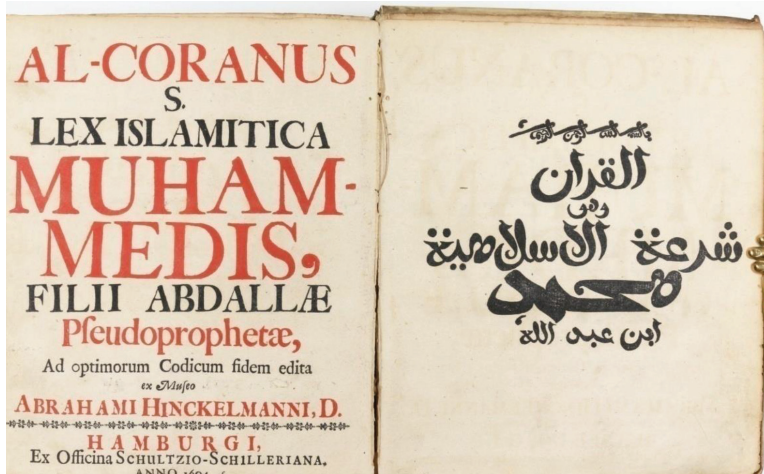 AL-CORANUS
S.
LEX ISLAMITICA
MUHAM-
MEDIS,
FILII ABDALLÆ
Pſeudoprophetæ,
Ad optimorum Codicum fidem edita
ex Muſeo
ABRAHAMI HINCKELMANNI, D.
HAMBURGI,
Ex Officina SCHULTZIO-SCHILLERIANA.
ANNO 1694
القران
وهى
شرعة الاسلامية
محمد
ابن عبد الله